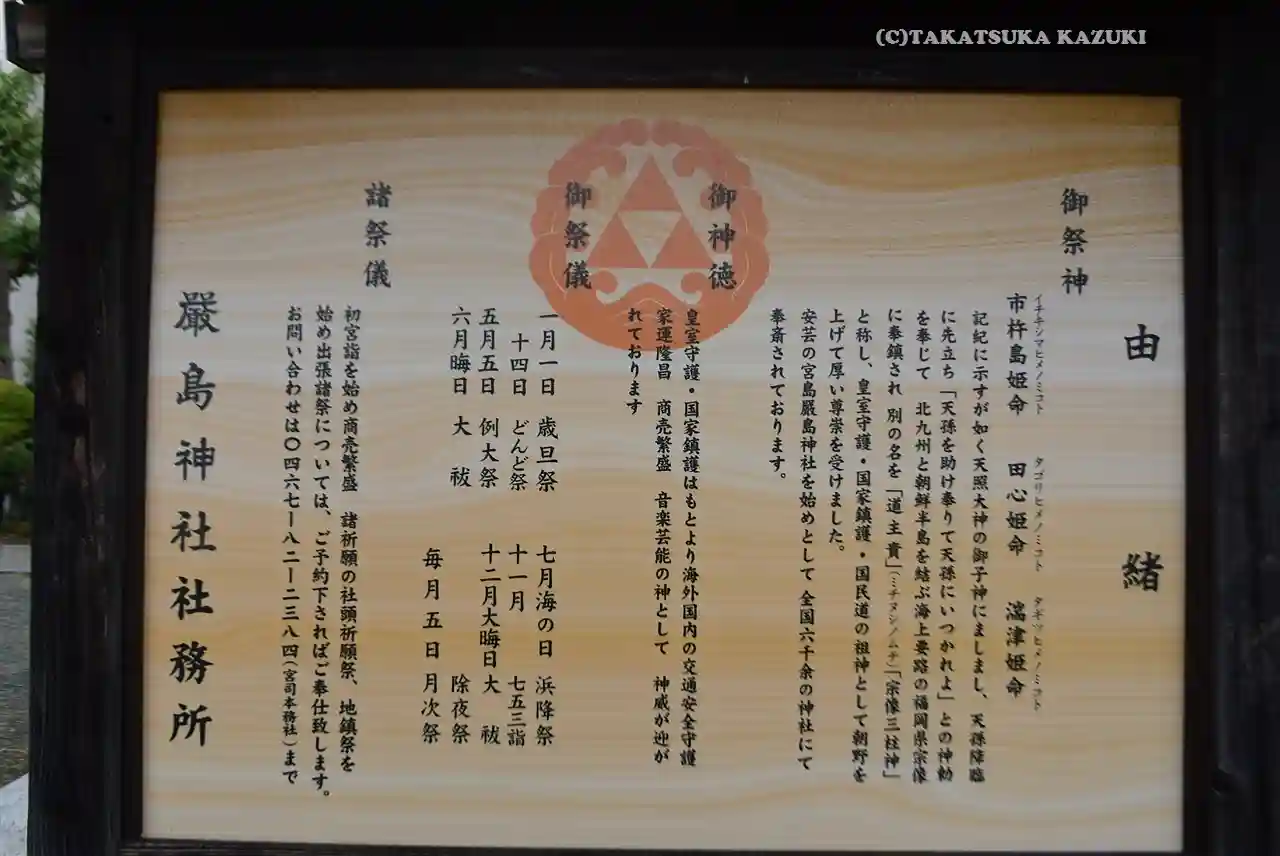 (C)TAKATSUKA KAZUKI
由緒
御祭神
市杵島姫命 田心姫命 湍津姫命
イチキシマヒメノミコト タゴリヒメノミコト タギツヒメノミコト
記紀に示すが如く天照大神の御子神にましまし、天孫降臨
に先立ち「天孫を助け奉りて天孫にいつかれよ」との神勅
を奉じて 北九州と朝鮮半島を結ぶ海上要路の福岡県宗像
に奉鎮され 別の名を「道主貴」(ミチヌシノムチ)「宗像三柱神」
と称し、皇室守護・国家鎮護・国民道の祖神として朝野を
上げて厚い尊崇を受けました。
安芸の宮島厳島神社を始めとして 全国六千余の神社にて
奉斎されております。
御神徳
皇室守護・国家鎮護はもとより海外国内の交通安全守護
家運隆昌 商売繁盛 音楽芸能の神として 神威が迎が
れております
御祭儀
一月一日 歳旦祭 七月海の日 浜降祭
十四日 どんど祭 十一月 七五三詣
五月五日 例大祭 十二月大晦日 大祓
六月晦日 大祓 除夜祭
毎月五日 月次祭
諸祭儀
初宮詣を始め商売繁盛 諸祈願の社頭祈願祭、地鎮祭を
始め出張諸祭については、ご予約下さればご奉仕致します。
お問い合わせは〇四六七ー八二ー二三八四(宮司本務社)まで
厳島神社社務所